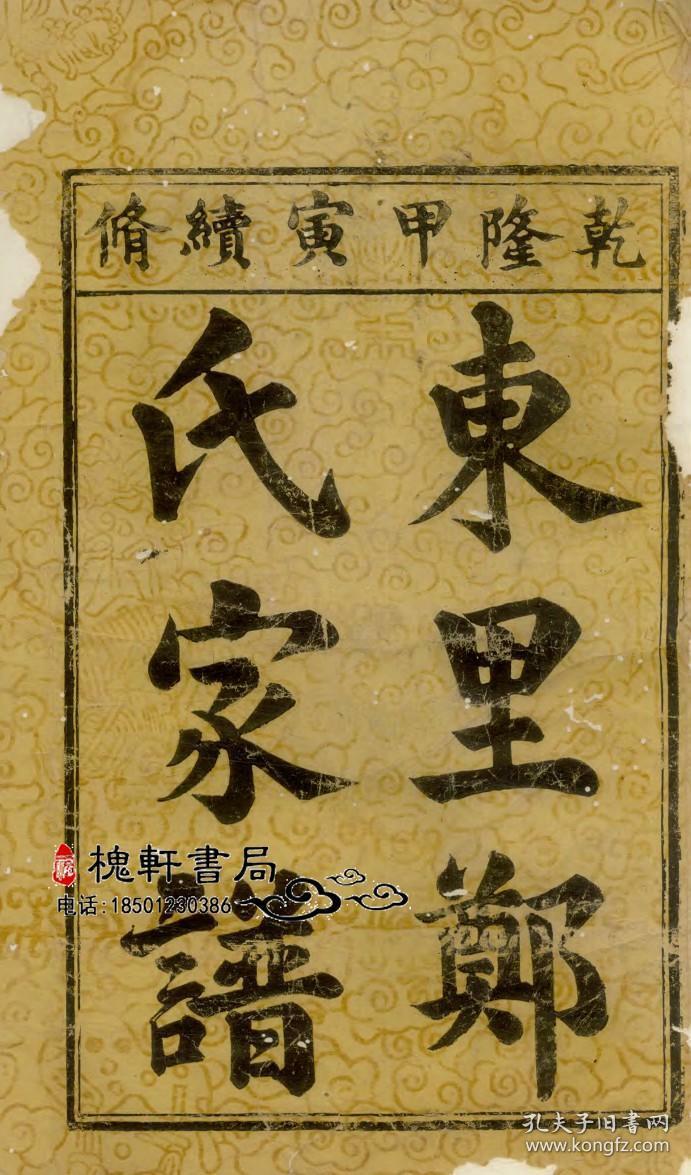 乾隆甲寅續脩
東里鄭
氏家譜
槐軒書局
电话:18501230386
孔夫子旧书网
www.kongfz.com